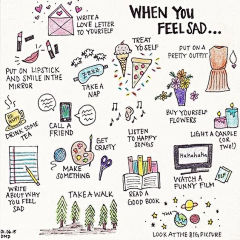 WHEN YOU
FEEL SAD...
WRITE A
LOVE LETTER
TO YOURSELF
TREAT
YO SELF
PUT ON A
PRETTY OUTFIT
PUT ON LIPSTICK
AND SMILE IN THE
MIRROR
TAKE A
NAP
BUY YOURSELF
FLOWERS
LIGHT A CANDLE
(OR
TWO!)
DRINK SOME
TEA
CALL A
FRIEND
GET
CRAFTY
MAKE
SOMETHING
LISTEN
TO HAPPY
SONGS
HaHaHaHa
WATCH A
FUNNY FILM
WRITE
ABOUT WHY
YOU FEEL
SAD
TAKE A WALK
READ A
GOOD BOOK
LOOK AT THE BIG PICTURE